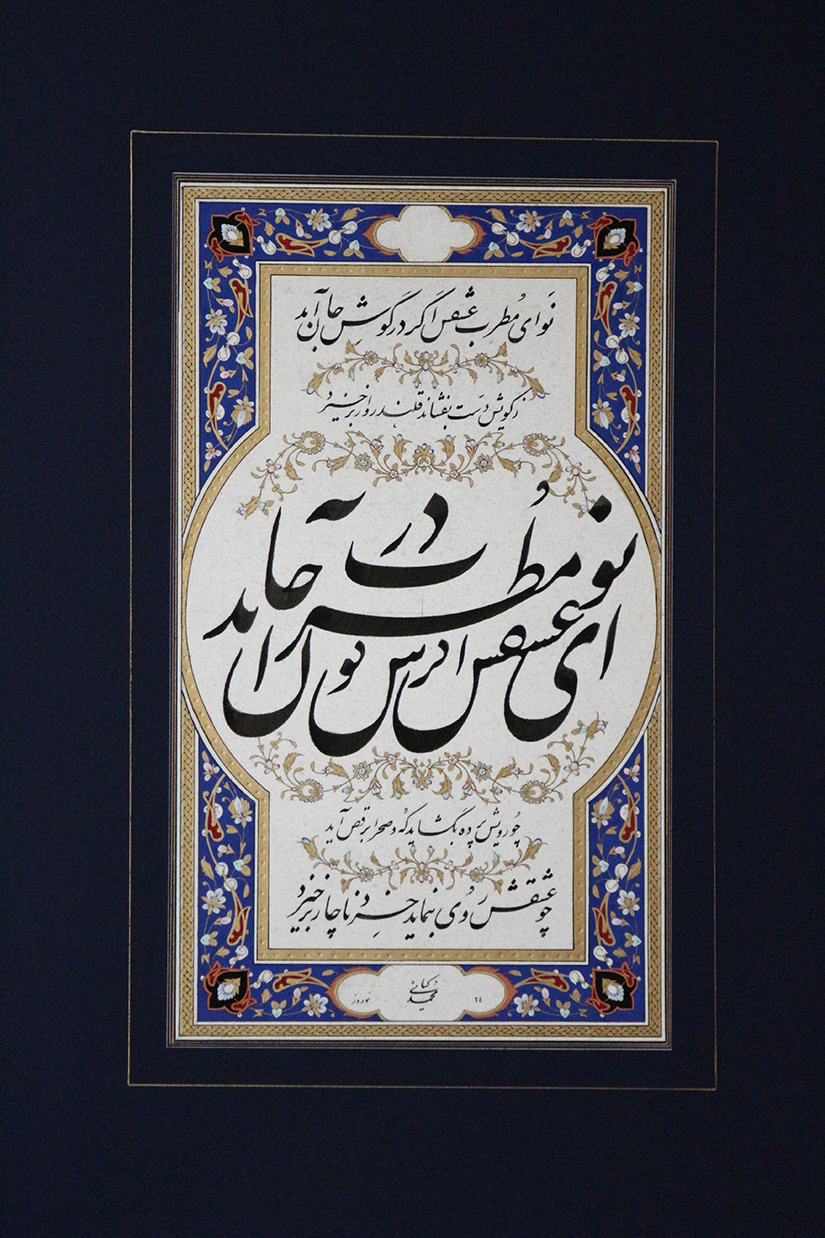 نَوای مُطرب عشقش اگر در گوشِ جان آید
ز کویش دست بفشاند قلندروار برخیزد
نوای مُطرب عشقش اگر در گوش جان آید
چو رویش پرده بگشاید که و صحرا برقص آید
چو عشقش روی بنماید خرد ناچار برخیزد
محمد
نوروز